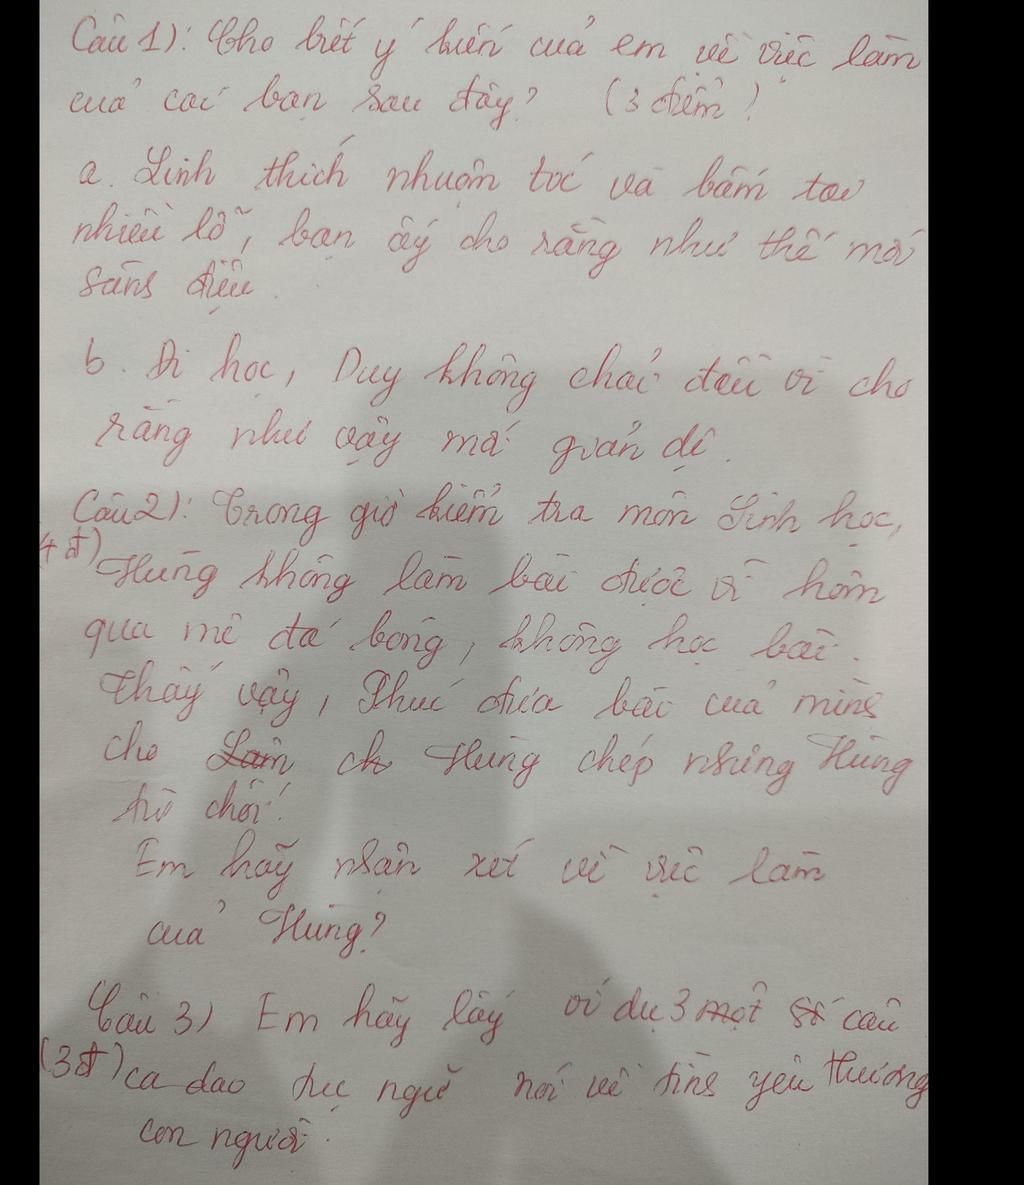 Câu 1): Cho biết ý kiến của em về việc làm
của các bạn sau đây? (3 điểm)
a. Linh thích nhuộm tóc và bấm tai
nhiều lỗ, bạn ấy cho rằng như thế mới
sành điệu.
b. Đi học, Duy không chải đầu vì cho
rằng như vậy mới giản dị.
Câu 2): Trong giờ kiểm tra môn Sinh học,
(4đ) Hùng không làm bài được vì hôm
qua mê đá bóng, không học bài.
Thấy vậy, Phúc đưa bài của mình
cho Lam ch Hùng chép nhưng Hùng
từ chối!
Em hãy nhận xét về việc làm
của Hùng?
Câu 3) Em hãy lấy ví dụ 3 một số câu
(3đ) ca dao tục ngữ nói về tình yêu thương
con người.